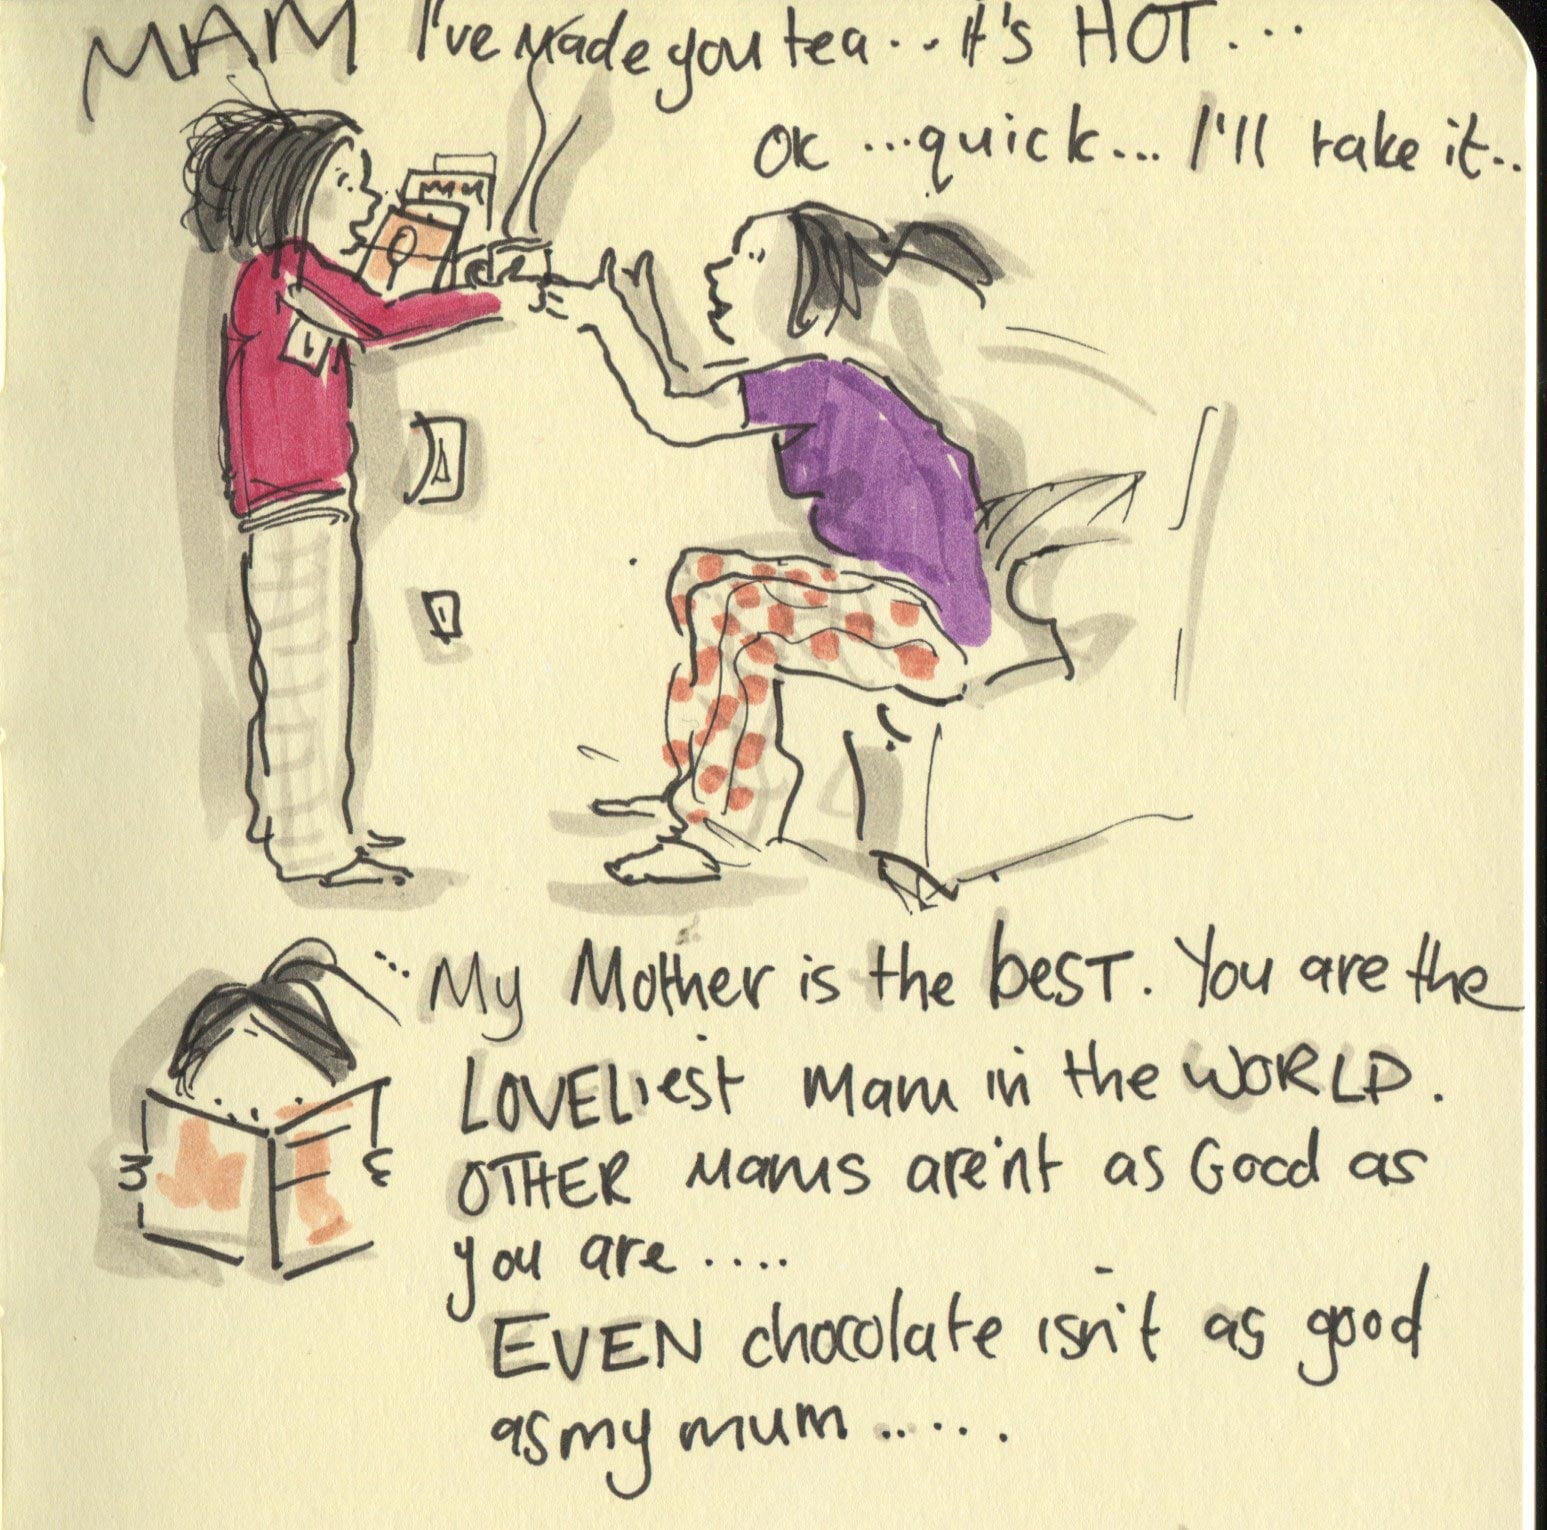 MAM I've made you tea... it's HOT...
OK ...quick... I'll take it..
...My Mother is the best. You are the
LOVELiest mam in the WORLD.
OTHER mams are'nt as Good as
you are....
EVEN chocolate isn't as good
as my mum.....